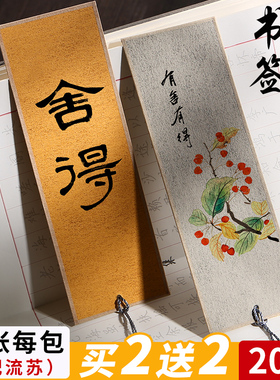 舍得
有舍有得
书签
张每包
流苏)
买2送2
20